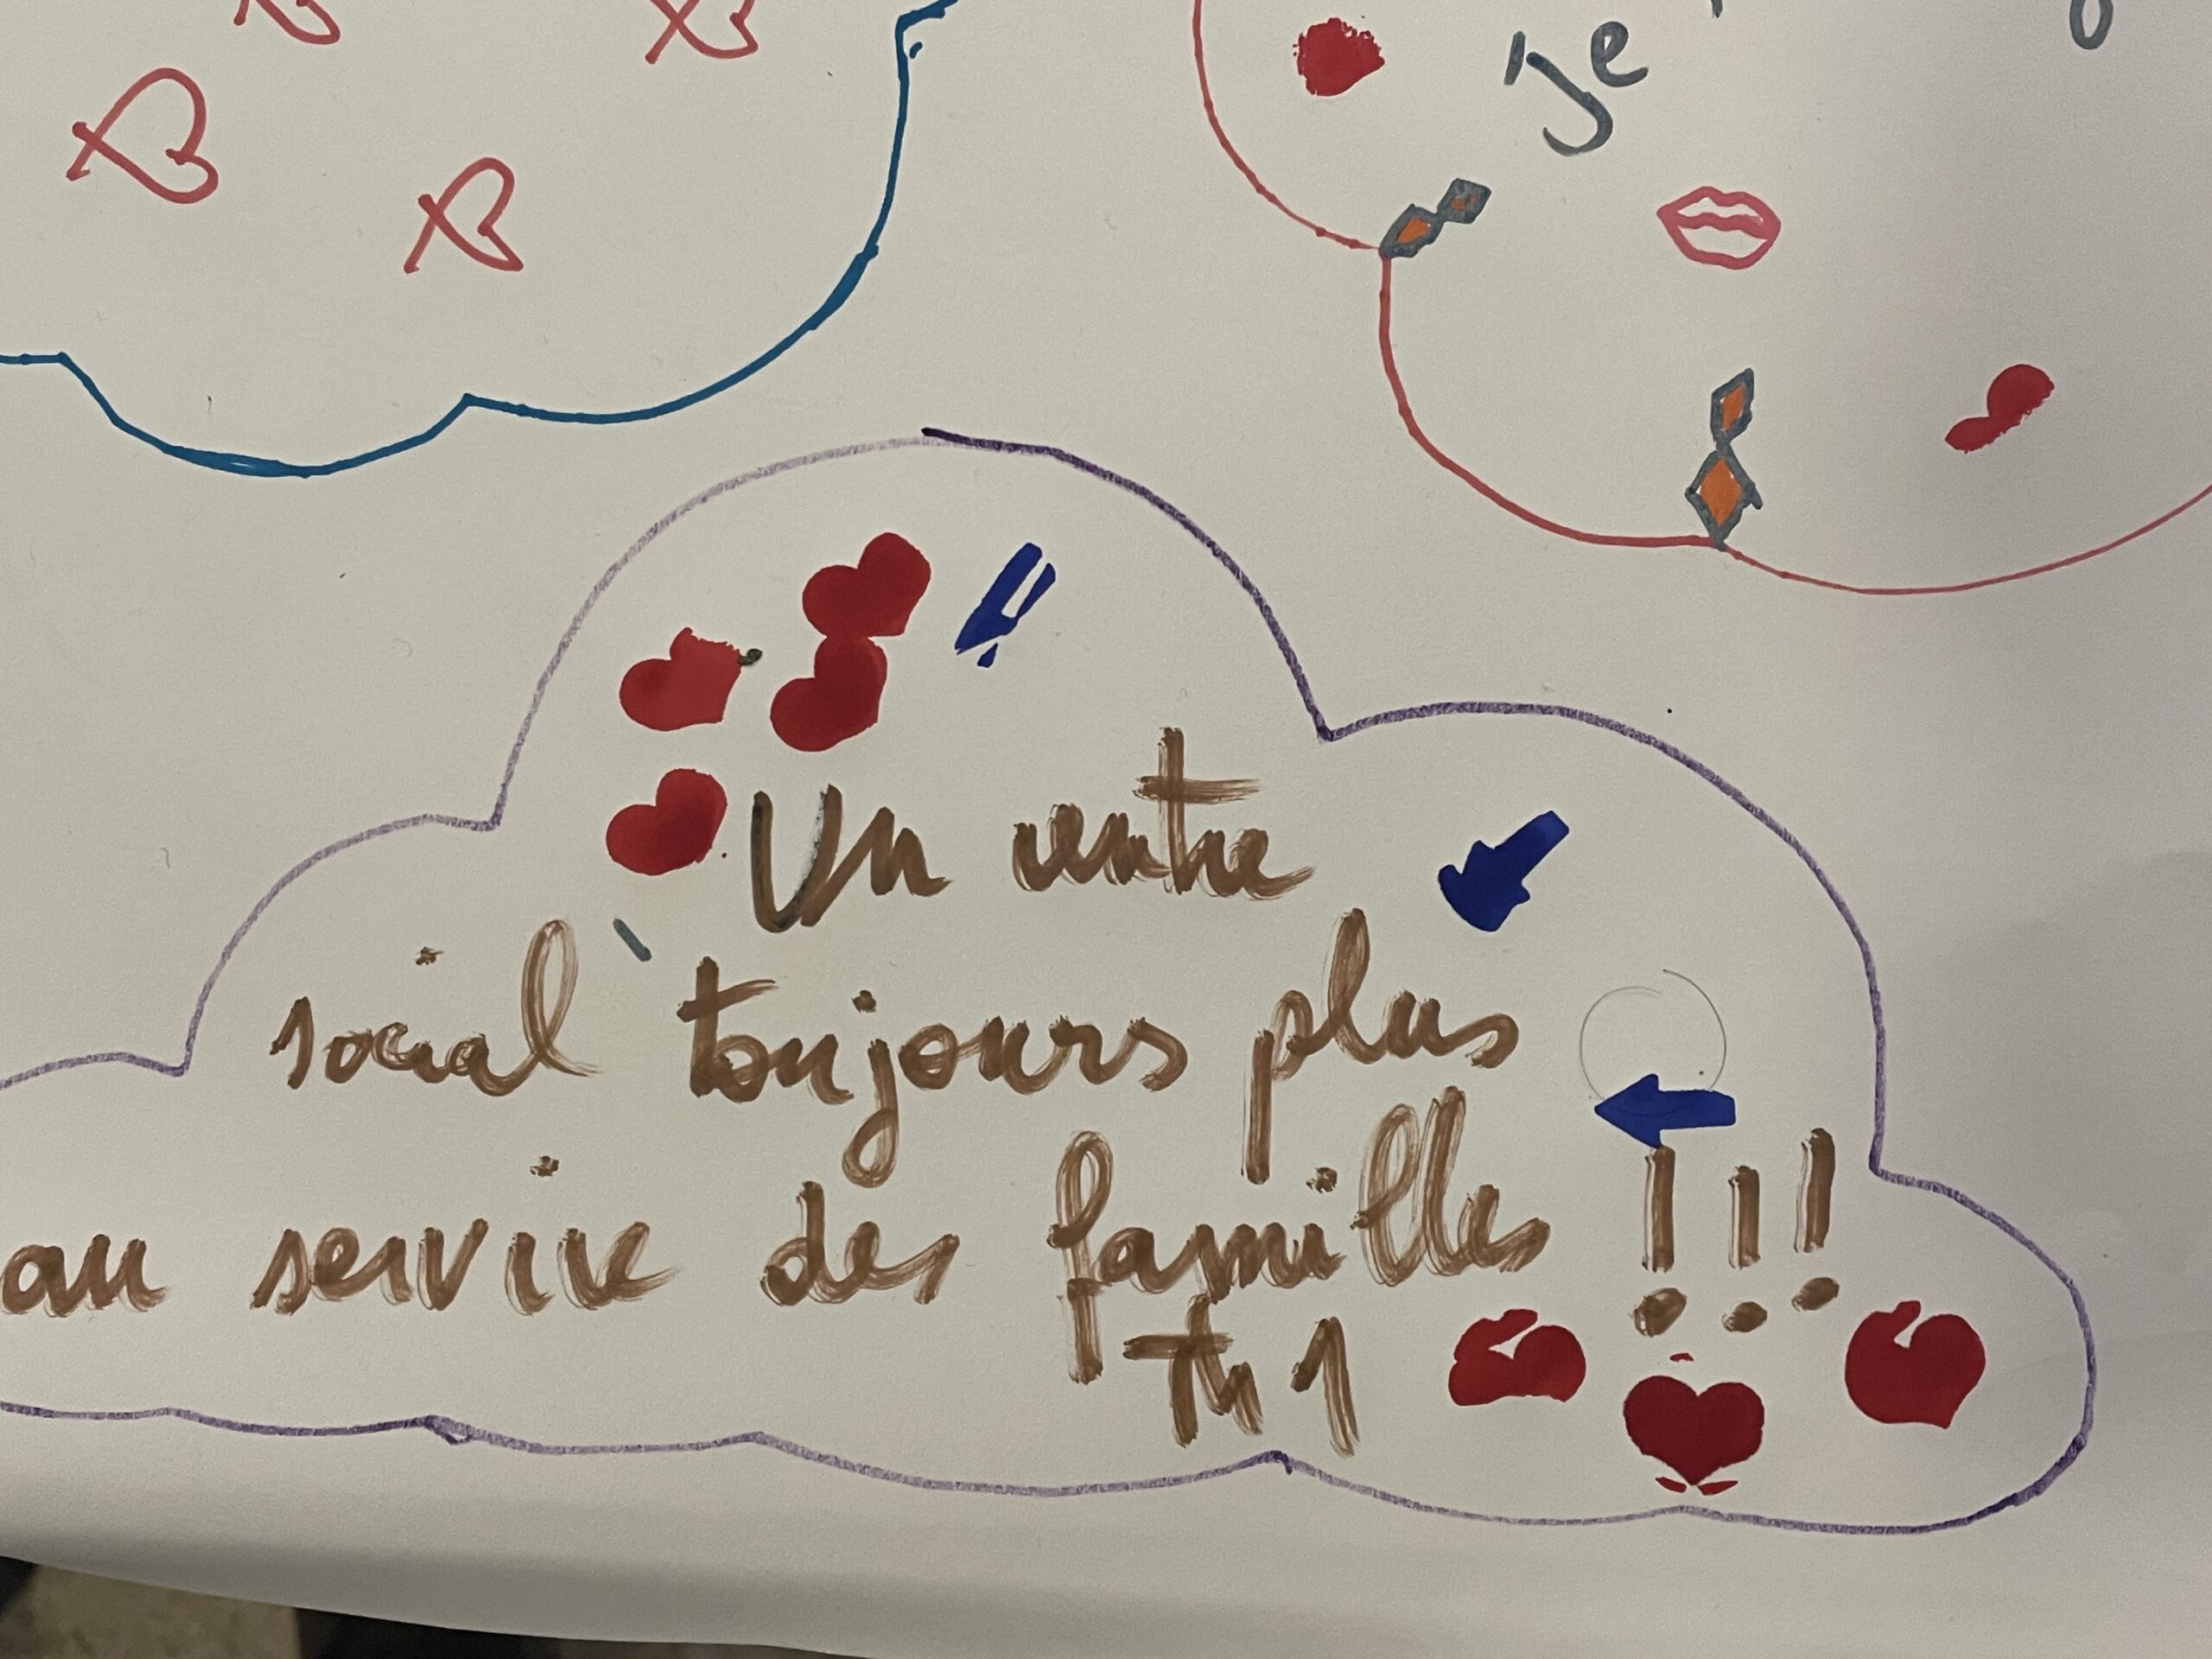 je
Un centre
social toujours plus
au service des familles !!!